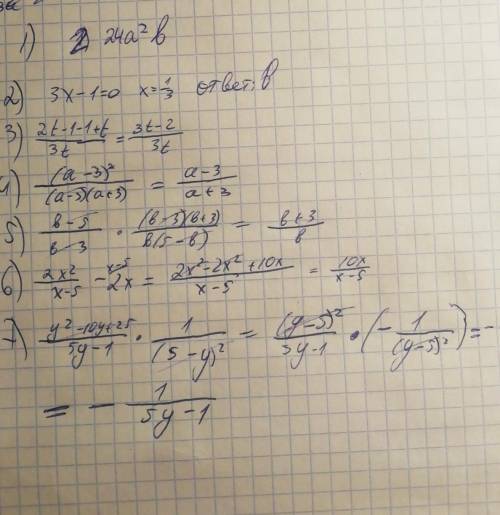 1) 24a²b
2) 3x-1=0 x=1/3 ответ: b
3) (2t-1-1+t)/3t = (3t-2)/3t
4) (a-3)²/((a-3)(a+3)) = (a-3)/(a+3)
5) (b-5)/(b-3) · ((b-3)(b+3))/(b(5-b)) = (b+3)/b
6) 2x²/(x-5) - 2x^(x-5) = (2x²-2x²+10x)/(x-5) = 10x/(x-5)
7) (y²-10y+25)/(5y-1) · 1/(5-y)² = (y-5)²/(5y-1) · (-1/(y-5)²) = -
= - 1/(5y-1)